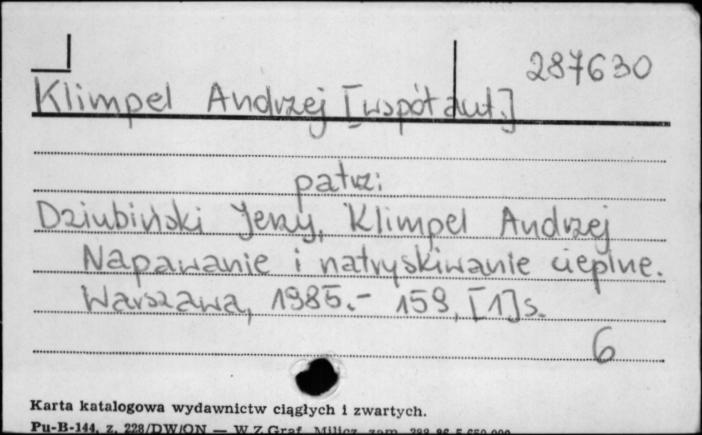 287630
Klimpel Andrzej [współaut.]
patrz:
Dziubiński Jerzy, Klimpel Andrzej
Napawanie i natryskiwanie cieplne.
Warszawa, 1985.- 159, [1] s.
6
Karta katalogowa wydawnictw ciągłych i zwartych.
Pu-B-144, z. 228/DW/ON — W.Z.Graf. Milicz, zam.